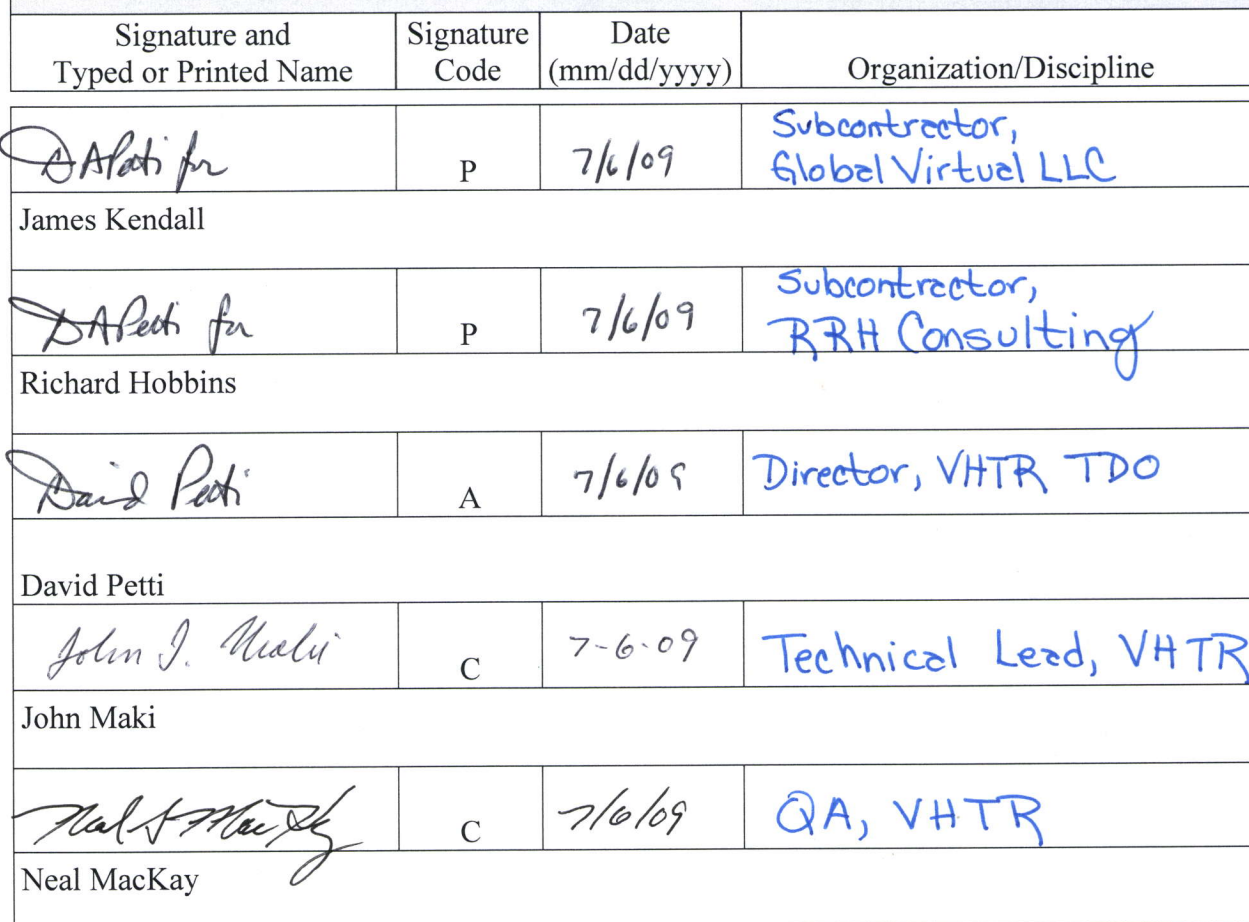 Signature and
Typed or Printed Name
Signature
Code
Date
(mm/dd/yyyy)
Organization/Discipline
DAPetti for
P
7/6/09
Subcontractor,
Global Virtual LLC
James Kendall
DAPetti for
P
7/6/09
Subcontractor,
RRH Consulting
Richard Hobbins
David Petti
A
7/6/09
Director, VHTR TDO
David Petti
John I. Maki
C
7-6-09
Technical Lead, VHTR
John Maki
C
7/6/09
QA, VHTR
Neal MacKay